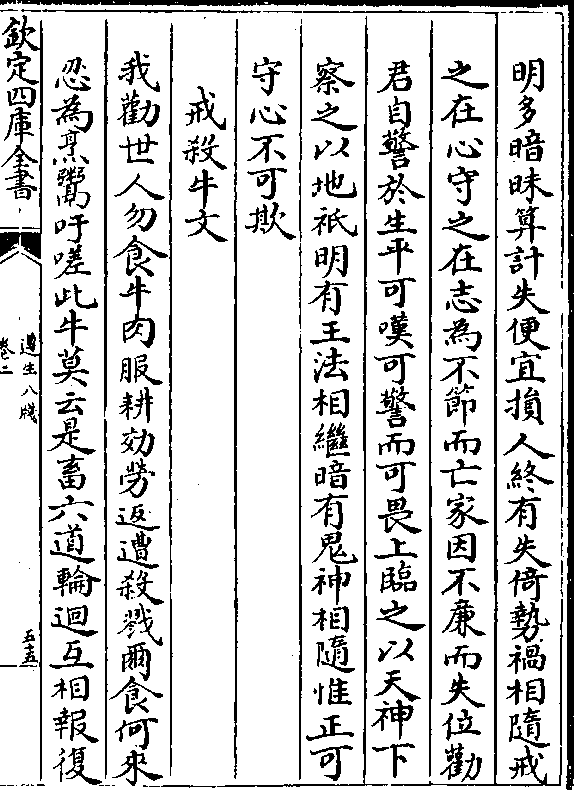 明多暗昧算計失便宜損人終有失倚勢禍相隨戒
之在心守之在志為不節而亡家因不廉而失位勸
君自警於生平可嘆可警而可畏上臨之以天神下
察之以地祇明有王法相繼暗有鬼神相隨惟正可
守心不可欺
戒殺牛文
我勸世人勿食牛肉服耕効勞返遭殺戮爾食何來
忍為烹鬻吁嗟此牛莫云是畜六道輪迴互相報復
欽定四庫全書
遵生八牋
卷二
五五